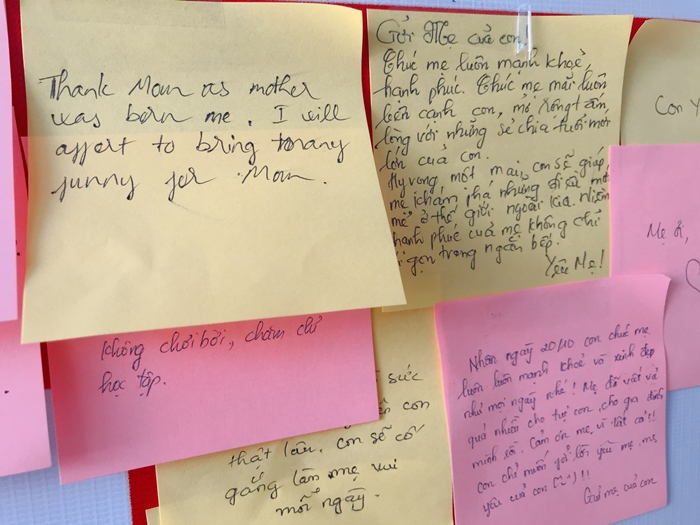 Thank Mom as mother
was born me. I will
affort to bring many
funny for Mom.
Gửi Mẹ của con!
Chúc mẹ luôn mạnh khoẻ,
hạnh phúc. Chúc mẹ mãi luôn
bên cạnh con, mở rộng tấm
lòng với những sẻ chia tuổi mới
lớn của con.
Hy vọng một mai, con sẽ giúp
mẹ khám phá những
mẻ ở thế giới ngoài kia. Niềm
hạnh phúc của mẹ không chỉ
gọn trong ngăn bếp.
Yêu Mẹ!
Con Y
Mẹ ơi,
không chơi bời, chăm chỉ
học tập.
sức
con
thật lâu. Con sẽ cố
gắng làm mẹ vui
mỗi ngày.
Nhân ngày 20/10 con chúc mẹ
luôn luôn mạnh khoẻ và xinh đẹp
như mọi ngày nhé! Mẹ đã vất vả
quá nhiều cho tụi con, cho gia đình
mình rồi. Cảm ơn mẹ, vì tất cả!!
Con chỉ muốn nói lời yêu mẹ, mẹ
yêu của con!!
Gửi mẹ của con